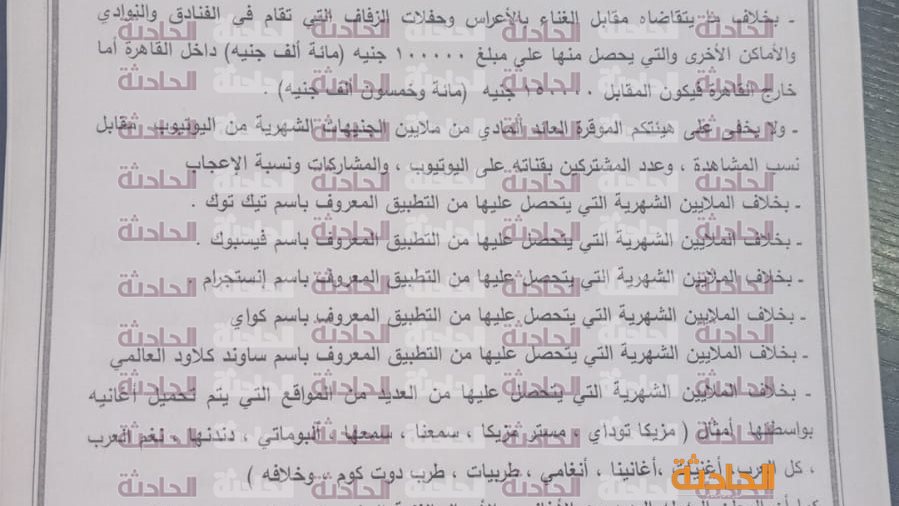 ـ بخلاف ما يتقاضاه مقابل الغناء بالأعراس وحفلات الزفاف التي تقام في الفنادق والنوادي
والأماكن الأخرى والتي يحصل منها علي مبلغ ١٠٠٠٠٠ جنيه (مائة ألف جنيه) داخل القاهرة أما
خارج القاهرة فيكون المقابل ١٥٠٠٠٠ جنيه (مائة وخمسون ألف جنيه) .
ـ ولا يخفى على هيئتكم الموقرة العائد المادي من ملايين الجنيهات الشهرية من اليوتيوب مقابل
نسب المشاهدة ، وعدد المشتركين بقناته على اليوتيوب ، والمشاركات ونسبة الإعجاب
ـ بخلاف الملايين الشهرية التي يتحصل عليها من التطبيق المعروف باسم تيك توك .
ـ بخلاف الملايين الشهرية التي يتحصل عليها من التطبيق المعروف باسم فيسبوك .
ـ بخلاف الملايين الشهرية التي يتحصل عليها من التطبيق المعروف باسم إنستجرام .
ـ بخلاف الملايين الشهرية التي يتحصل عليها من التطبيق المعروف باسم كواي
ـ بخلاف الملايين الشهرية التي يتحصل عليها من التطبيق المعروف باسم ساوند كلاود العالمي
ـ بخلاف الملايين الشهرية التي يتحصل عليها من العديد من المواقع التي يتم تحميل أغانيه
بواسطتها أمثال ( مزيكا توداي ، مستر مزيكا ، سمعنا ، سمعها ، ألبوماتي ، دندنها ، نغم العرب
، كل العرب، أغنية ،أغانينا ، أنغامي ، طربيات ، طرب دوت كوم ، وخلافه )
الحادثة